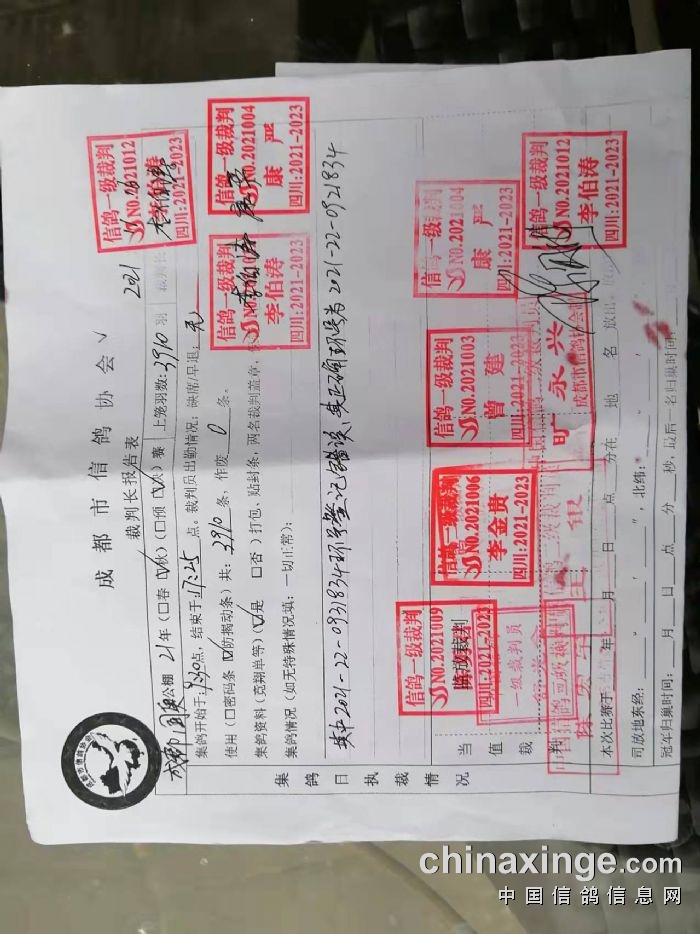 成都市信鸽协会
裁判长报告表
公棚 21年(□春 ☑秋)(□预 ☑决)赛 上笼羽数:3910羽 裁判长
集鸽开始于:7:30点,结束于:17:25点。裁判员出勤情况:缺席/早退:无
使用(□密码条 ☑防揭动条)共:3910条,作废0条。
集鸽资料(克翔单等)(☑是 □否)打包,贴封条,两名裁判盖章:
集鸽情况(如无特殊情况填:一切正常):
其中2021-22-0931834环号登记错误,其正确环号为2021-22-0921834
集鸽日执裁情况
当值裁判
信鸽一级裁判
NO.2021012
李伯涛
四川:2021-2023
信鸽一级裁判
NO.2021004
康严
四川:2021-2023
信鸽一级裁判
李伯涛
四川:2021-2023
信鸽一级裁判
NO.2021009
四川:2021-2023
信鸽一级裁判
NO.2021006
李金贵
四川:2021-2023
信鸽一级裁判
NO.2021003
曾建
四川:2021-2023
信鸽一级裁判
NO.2021004
康严
四川:2021-2023
信鸽一级裁判
NO.2021012
李伯涛
四川:2021-2023
一级裁判员
旷永兴
成都市信鸽协会
本次比赛于 年 月 日 点 分在 地 名 放出
司放地东经: ,北纬:
冠军归巢时间: 月 日 点 分 秒,最后一名归巢时间:
chinaxinge.com
中国信鸽信息网